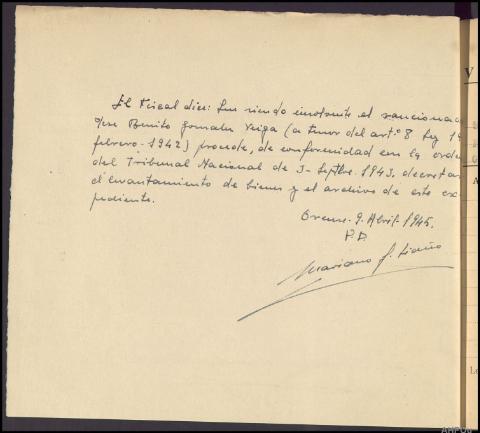 El Fiscal dice: Que siendo insolvente el sancionad
José Benito Gonzalez Veiga (a tenor del artº 8 Ley 19
febrero 1942) procede, de conformidad con la orden
del Tribunal Nacional de 3 - Septbre. 1943. decretar
el levantamiento de bienes y el archivo de este ex-
pediente.
Orense. 9. Abril. 1945.
P.D
Mariano
V
A